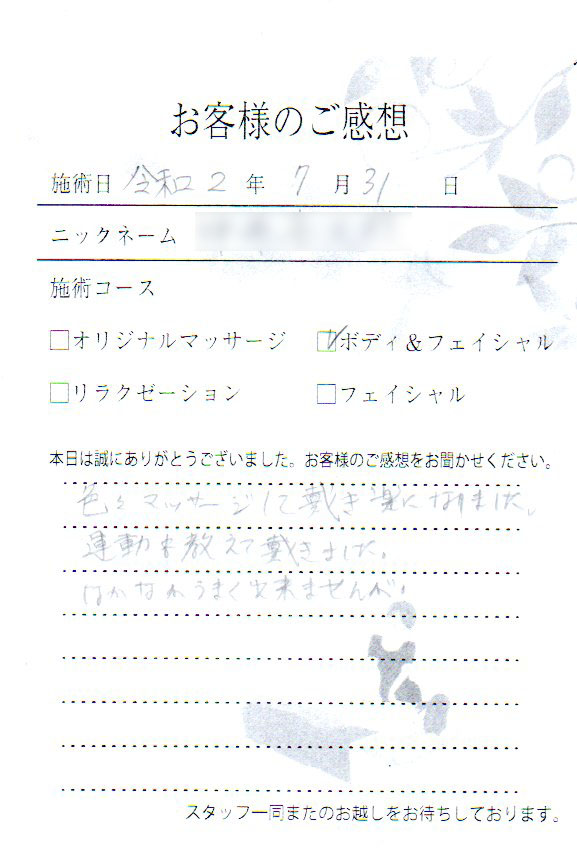 お客様のご感想
施術日 令和 2 年 7 月 31 日
ニックネーム
施術コース
□オリジナルマッサージ ☑ボディ&フェイシャル
□リラクゼーション □フェイシャル
本日は誠にありがとうございました。お客様のご感想をお聞かせください。
色々マッサージして戴き楽になりました。
運動も教えて戴きました。
なかなかうまく出来ませんが。
スタッフ一同またのお越しをお待ちしております。